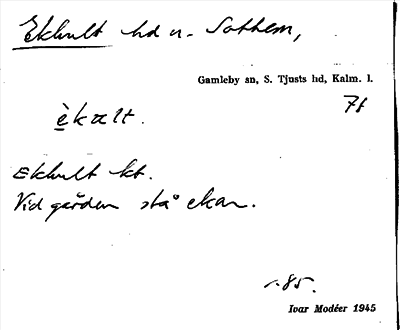 Ekhult hd u. Sothem,
Gamleby sn, S. Tjusts hd, Kalm. l.
78
èkælt.
Ekhult kt.
Vid gården stå ekar.
s. 85.
Ivar Modéer 1945